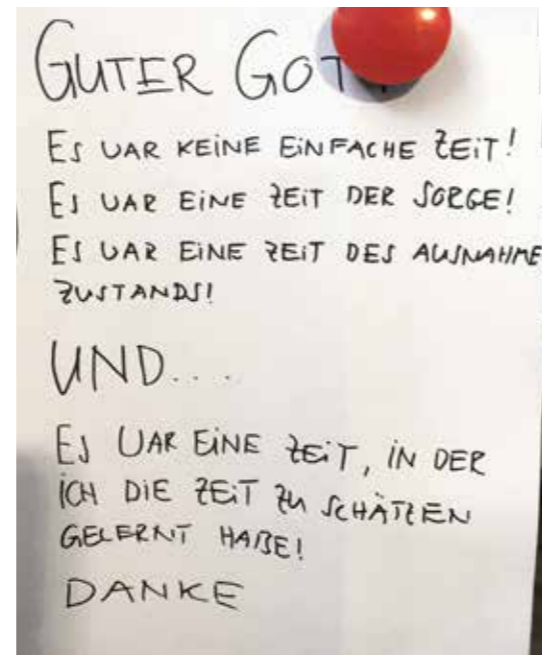 GUTER GOTT,
ES WAR KEINE EINFACHE ZEIT!
ES WAR EINE ZEIT DER SORGE!
ES WAR EINE ZEIT DES AUSNAHME
ZUSTANDS!
UND...
ES WAR EINE ZEIT, IN DER
ICH DIE ZEIT ZU SCHÄTZEN
GELERNT HABE!
DANKE